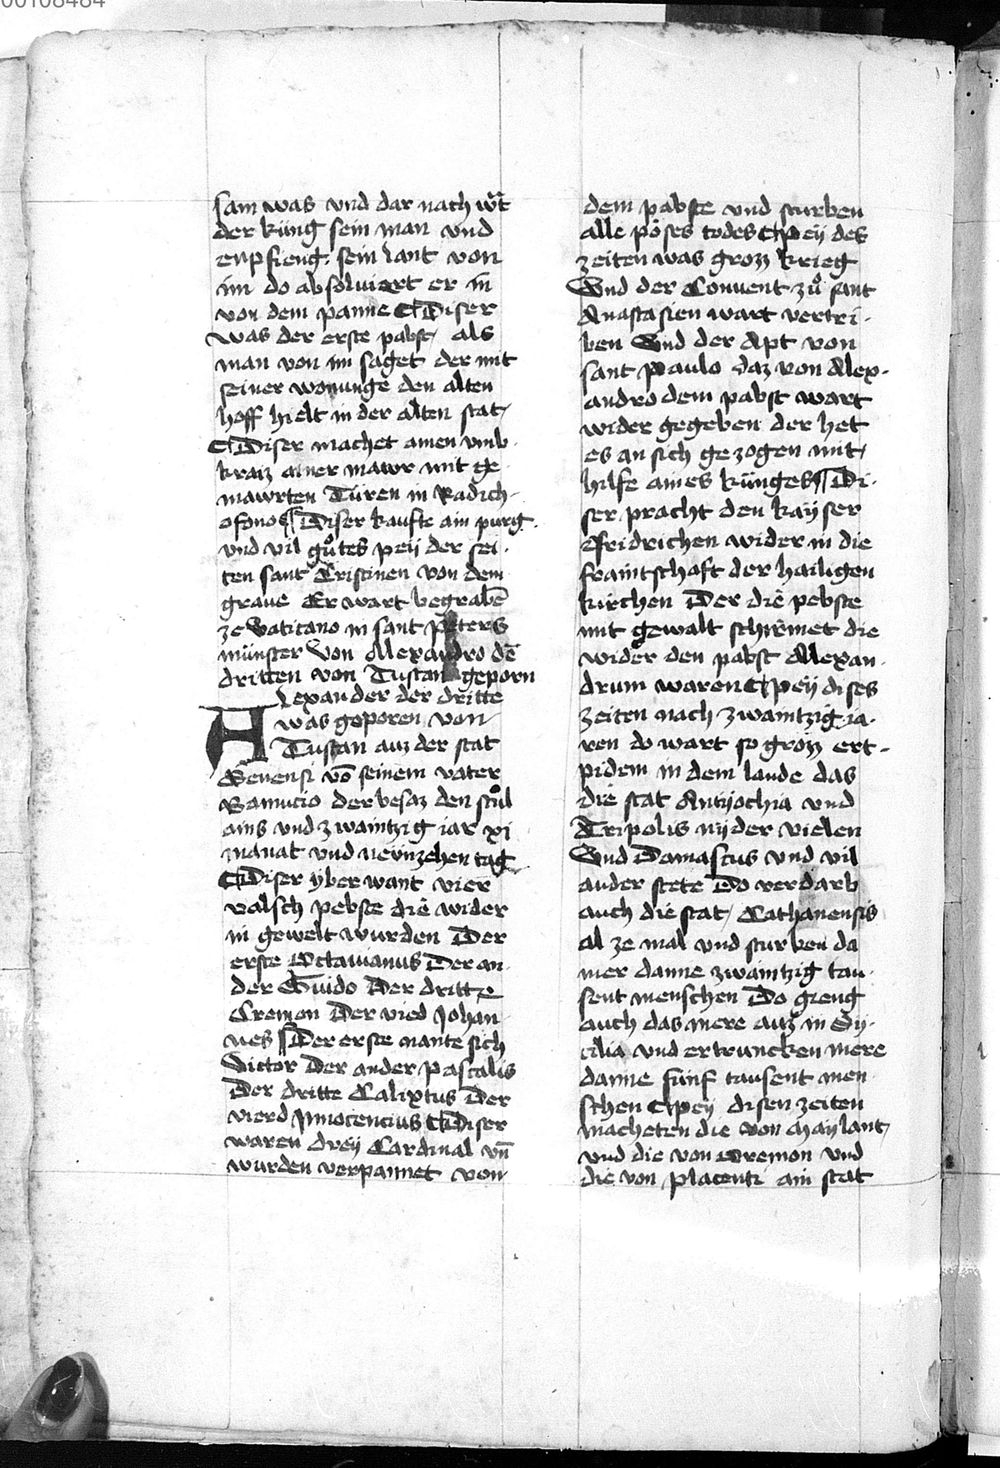 00108484
sam was vnd dar nach wᷓt
der küng sein man vnd
enpfieng sein lant von
im do absoluiert er in
von dem panne ¶ Diser
was der erste pabst als
man von im saget der mit
seiner wonunge den alten
hoff hielt in der alten stat
¶ Diser machet ainen vmb
kraiz ainer mawr mit ge
mawrten Türen in Radich-
ofono ¶ Diser kaufte ain purg
vnd vil gůtes peÿ der sei-
ten sant Cristinen von dem
graue Er wart begrabē
ze Vaticano in sant peters
münster Von Alexandro dē
dritten von Tustan geporn
Alexander der dritte
was geporen von
Tustan auz der stat
Senensi vō seinem vater
Ranucio der besaz den stůl
ains vnd zwaintzig iar xi
manat vnd neünzehen tag
¶ Diser yber want vier
valsch pebste die wider
in gewelt wurden Der
erste Octauianus Der an-
der Guido Der dritte
Cremon Der vierd Johan-
nes ¶ Der erste nante sich
Victor Der ander pascalis
Der dritte Calixtus Der
vierd Jnnocencius ¶ Diser
waren dreÿ Cardinal vn̄
wurden verpannet von
dem pabste vnd sturben
alle põses todes ¶ peÿ des
zeiten was grozz krieg
Vnd der Conuent zů sant
Anastasien wart vertri-
ben Vnd der Apt von
sant paulo daz von Alex-
andro dem pabst wart
wider gegeben der het
es an sich gezogen mit
hilfe aines künges ¶ Di-
ser pracht den kaÿser
fridrichen wider in die
fraintschaft der hailigen
kirchen Der die pebste
mit gewalt schirmet die
wider den pabst Alexan-
drum waren ¶ peÿ dises
zeiten nach zwaintzig ia-
ren do wart so grozz ert-
pidem in dem lande das
die stat Antÿochia vnd
Tripolis nÿder vielen
Vnd Damascus vnd vil
ander stete Do verdarb
auch die stat Cathanensis
al ze mal vnd sturben da
mer danne zwaintzig tau-
sent menschen Do gieng
auch das mere auz in Sÿ-
cilia vnd ertruncken mere
danne fünf tausent men
schen ¶ peÿ disen zeiten
macheten die von Maÿlant
vnd die von Cremon vnd
die von placenti ain stat